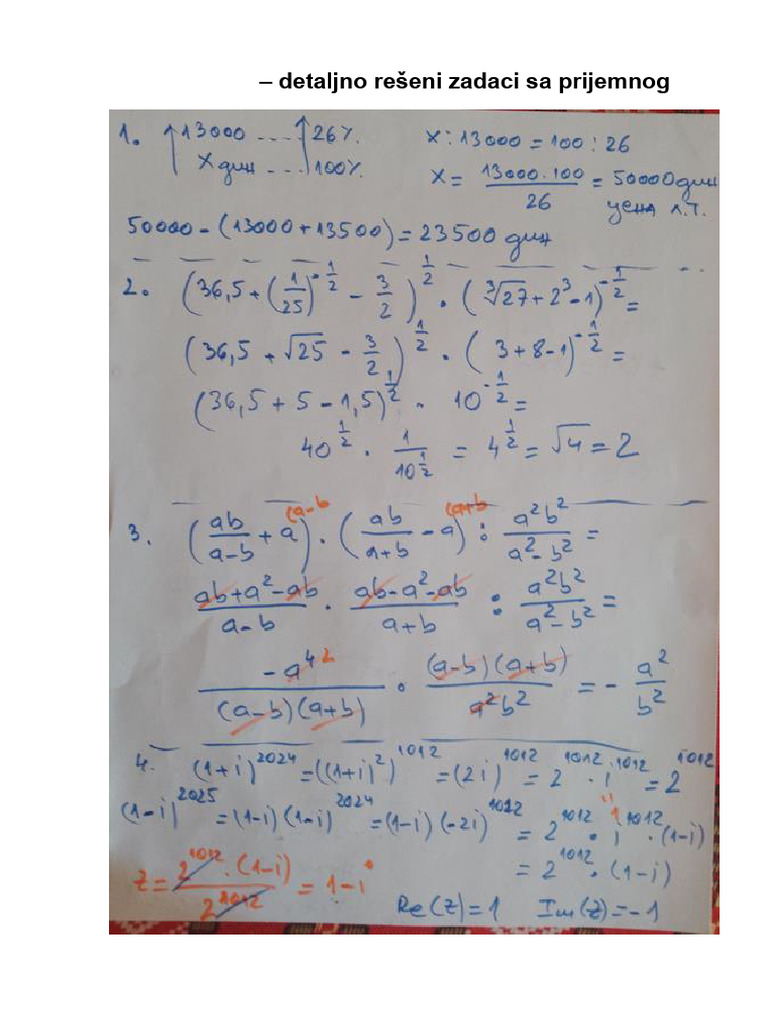 – detaljno rešeni zadaci sa prijemnog
1. ↑13000 .... ↑26%. x:13000=100:26
x дин .... 100%. x= 13000·100/26 = 50000 дин
цена л.т.
50000-(13000+13500)=23500 дин
2. (36,5+(1/25)^(-1/2) - 3/2)^(1/2) · (∛27+2³-1)^(-1/2) =
(36,5+√25 - 3/2)^(1/2) · (3+8-1)^(-1/2) =
(36,5+5-1,5)^(1/2) · 10^(-1/2) =
40^(1/2) · 1/10^(1/2) = 4^(1/2) = √4 = 2
3. (ab/(a-b) + a) (a-b · (ab/(a+b) - a) (a+b : a²b²/(a²-b²) =
(ab+a²-ab)/(a-b) · (ab-a²-ab)/(a+b) : a²b²/(a²-b²) =
-a⁴ ²/((a-b)(a+b)) · (a-b)(a+b)/(a²b²) = - a²/b²
4. (1+i)^2024 = ((1+i)²)^1012 = (2i)^1012 = 2^1012 · i^1012 = 2^1012
" 1
(1-i)^2025 = (1-i)(1-i)^2024 = (1-i)(-2i)^1012 = 2^1012 · i^1012 · (1-i)
= 2^1012 · (1-i)
z = 2^1012 · (1-i)/2^1012 = 1-i
Re(z)=1 Im(z)=-1